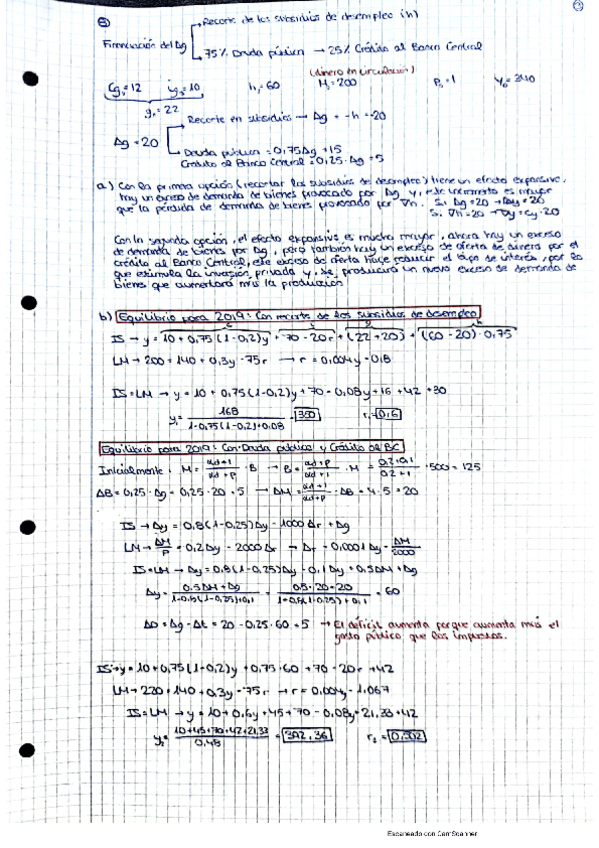 ③
⑤
Recorte de los subsidios de desempleo (h)
Financiación del Δg
75% Deuda pública → 25% Crédito al Banco Central
(dinero en circulación)
Cg₁=12 h₁=60 M₁=200 P₁=1 Y₀=340
g₁=22
Recorte en subsidios → Δg = -h = -20
Δg = 20
Deuda pública = 0,75Δg = 15
Crédito al Banco Central = 0,25·Δg = 5
a) Con la primera opción (recortar los subsidios de desempleo) tiene un efecto expansivo,
hay un exceso de demanda de bienes provocado por Δg y, este incremento es mayor
que la pérdida de demanda de bienes provocado por ∇h. Si Δg=20 → Δy=20
Si ∇h=20 → ∇y=cy·20
Con la segunda opción, el efecto expansivo es mucho mayor, ahora hay un exceso
de demanda de bienes por Δg, pero también hay un exceso de oferta de dinero por el
crédito al Banco Central, este exceso de oferta hace reducir el tipo de interés, por lo
que estimula la inversión privada y, se producirá un nuevo exceso de demanda de
bienes que aumentará más la producción
b) Equilibrio para 2019: Con recorte de los subsidios de desempleo
IS → y = 10 + 0,75(1-0,2)y + 70 - 20r + (22+20) + (60-20)·0,75
LM → 200 = 140 + 0,3y - 75r → r = 0,004y - 0,8
IS=LM → y = 10 + 0,75(1-0,2)y + 70 - 0,08y + 16 + 42 + 30
y₁ = 168 / 1-0,75(1-0,2)+0,08 = 350 r₁=0,6
Equilibrio para 2019: Con Deuda pública y Crédito al BC
Inicialmente: M = ·B → B = ·M = ·500 = 125
ΔB = 0,25·Δg = 0,25·20 = 5 → ΔM = ·ΔB = 4·5 = 20
IS → Δy = 0,8(1-0,25)Δy - 1000Δr + Δg
LM → ΔM/P = 0,2Δy - 2000Δr → Δr = 0,0001Δy - ΔM/2000
IS=LM → Δy = 0,8(1-0,25)Δy - 0,1Δy + 0,5ΔM + Δg
Δy = 0,5ΔM+Δg / 1-0,8(1-0,25)+0,1 = 0,5·20+20 / 1-0,8(1-0,25)+0,1 = 60
ΔD = Δg - Δt = 20 - 0,25·60 = 5 → El déficit aumenta porque aumenta más el
gasto público que los impuestos.
IS → y = 10 + 0,75(1-0,2)y + 0,75·60 + 70 - 20r + 42
LM → 220 = 140 + 0,3y - 75r → r = 0,004y - 1,067
IS=LM → y = 10 + 0,6y + 45 + 70 - 0,08y + 21,33 + 42
y₂ = 10+45+70+42+21,33 / 0,48 = 392,36 r₂ = 0,502
Escaneado con CamScanner